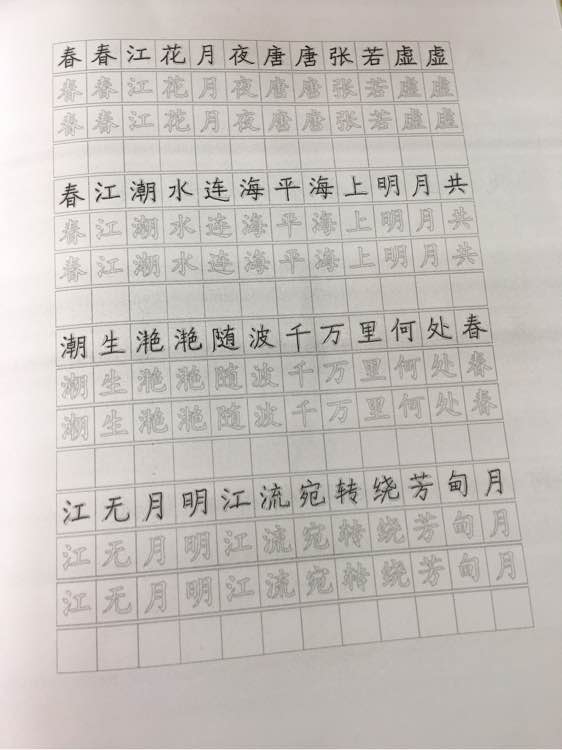 春春江花月夜唐唐张若虚虚
春春江花月夜唐唐张若虚虚
春春江花月夜唐唐张若虚虚
春江潮水连海平海上明月共
春江潮水连海平海上明月共
春江潮水连海平海上明月共
潮生滟滟随波千万里何处春
潮生滟滟随波千万里何处春
潮生滟滟随波千万里何处春
江无月明江流宛转绕芳甸月
江无月明江流宛转绕芳甸月
江无月明江流宛转绕芳甸月